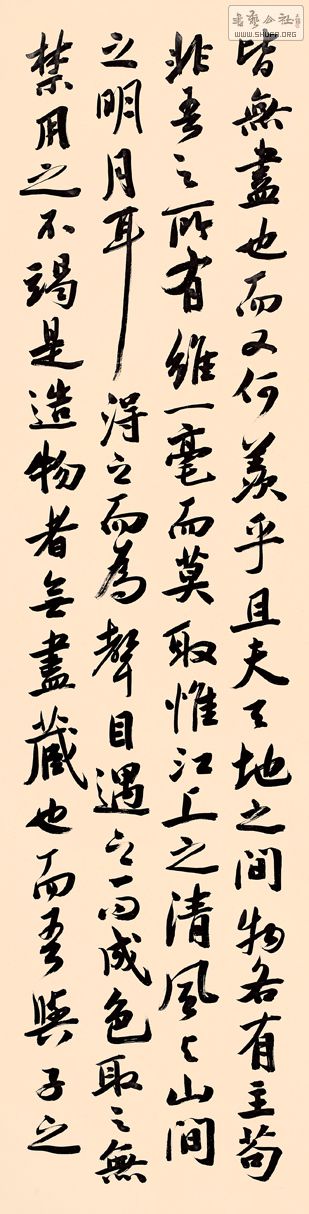 書藝公社
WWW.SHUFA.ORG
皆無盡也而又何羨乎且夫天地之間物各有主苟
非吾之所有雖一毫而莫取惟江上之清風与山間
之明月耳得之而為聲目遇之而成色取之無
禁用之不竭是造物者無盡藏也而吾與子之